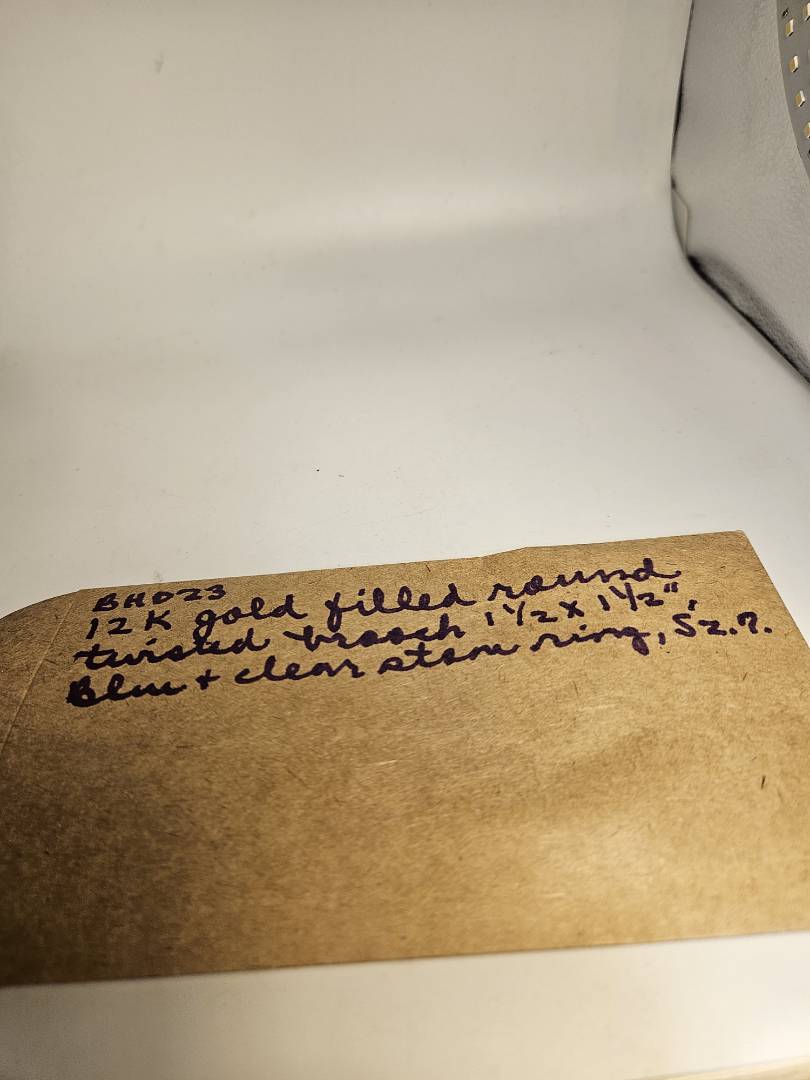 BH023
12K gold filled round
twisted brooch 1 1/2 x 1 1/2",
Blue + clear stone ring, Sz.?.